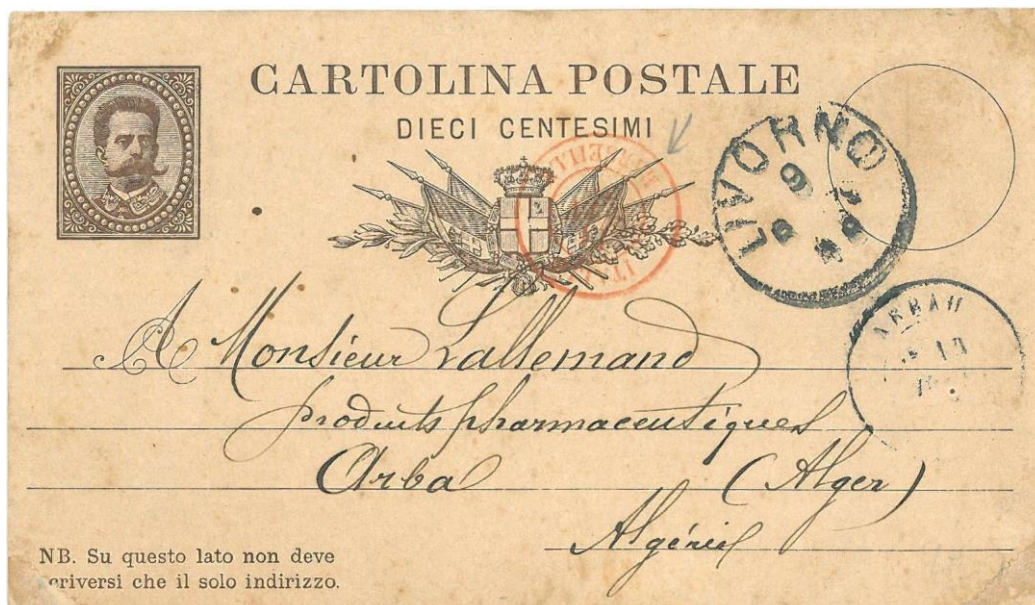 CARTOLINA POSTALE
DIECI CENTESIMI
LIVORNO
9
ARBAH
A Monsieur Lallemand
produits pharmaceutiques
Arba (Alger)
Algérie
NB. Su questo lato non deve
scriversi che il solo indirizzo.